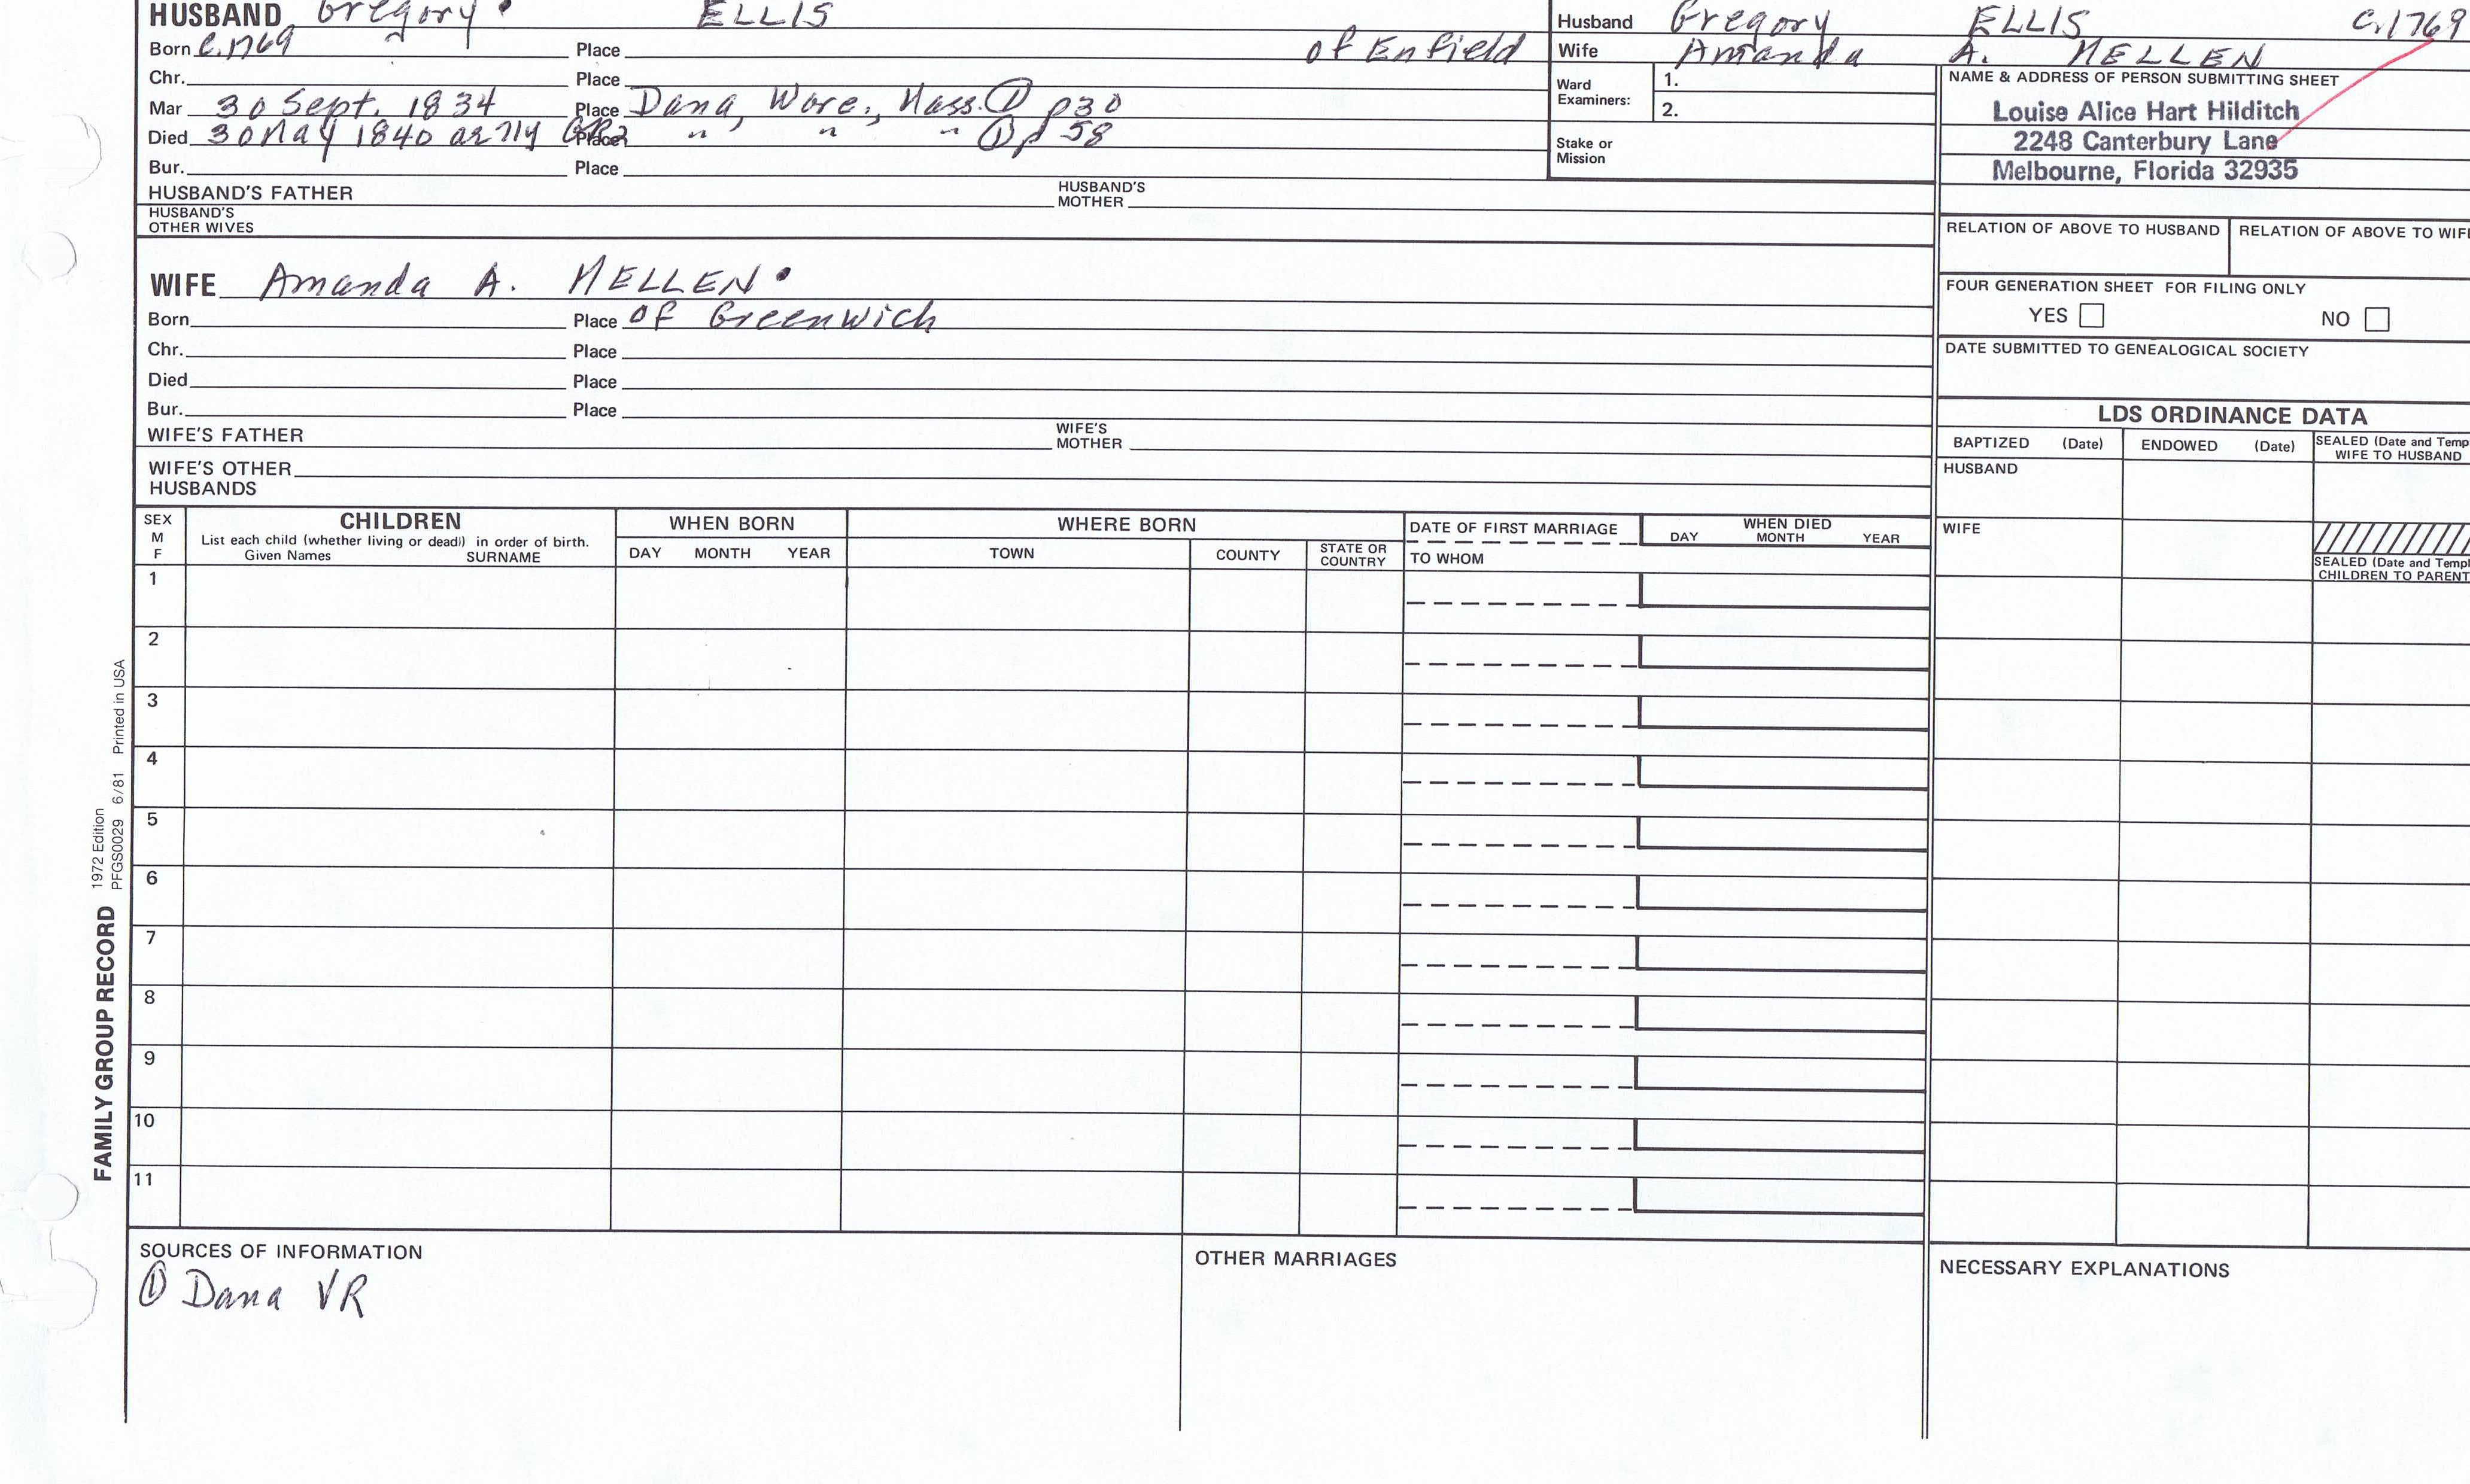 HUSBAND Gregory ELLIS
Born c.1769 Place of Enfield
Chr. Place
Mar 30 Sept. 1834 Place Dana, Worc., Mass. ① p30
Died 30 May 1840 ae 71y GR2 Place " " " ① p 58
Bur. Place
HUSBAND'S FATHER HUSBAND'S MOTHER
HUSBAND'S OTHER WIVES
Husband Gregory ELLIS c.1769
Wife Amanda A. MELLEN
Ward Examiners: 1.
2.
Stake or Mission
NAME & ADDRESS OF PERSON SUBMITTING SHEET
Louise Alice Hart Hilditch
2248 Canterbury Lane
Melbourne, Florida 32935
RELATION OF ABOVE TO HUSBAND RELATION OF ABOVE TO WIFE
WIFE Amanda A. MELLEN
Born Place of Greenwich
Chr. Place
Died Place
Bur. Place
WIFE'S FATHER WIFE'S MOTHER
WIFE'S OTHER HUSBANDS
FOUR GENERATION SHEET FOR FILING ONLY
YES NO
DATE SUBMITTED TO GENEALOGICAL SOCIETY
LDS ORDINANCE DATA
BAPTIZED (Date) ENDOWED (Date) SEALED (Date and Temp
WIFE TO HUSBAND
HUSBAND
WIFE
SEALED (Date and Templ
CHILDREN TO PARENT
SEX M F CHILDREN WHEN BORN WHERE BORN DATE OF FIRST MARRIAGE WHEN DIED
List each child (whether living or dead) in order of birth.
Given Names SURNAME DAY MONTH YEAR TOWN COUNTY STATE OR COUNTRY TO WHOM DAY MONTH YEAR
1
2
3
4
5
6
7
8
9
10
11
FAMILY GROUP RECORD 1972 Edition
PFGS0029 6/81 Printed in USA
SOURCES OF INFORMATION
① Dana VR
OTHER MARRIAGES
NECESSARY EXPLANATIONS